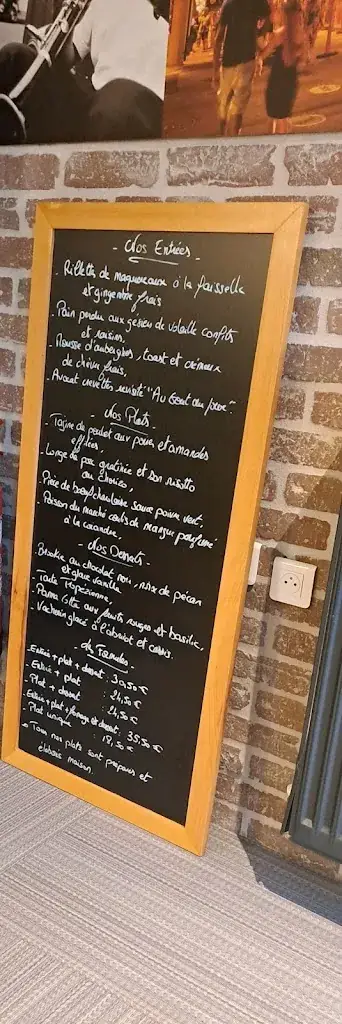 - Nos Entrées -
- Rillette de maquereaux à la faisselle
et gingembre frais
- Pain perdu aux gésiers de volaille confits
et raisins,
- Mousse d'aubergines, toast et crémeux
de chèvre frais,
- Avocat crevettes revisité "Au Goût du Jour"
- Nos Plats -
- Tajine de poulet aux poires et amandes
effilées,
- Longe de porc gratinée et son risotto
au chorizo,
- Pièce de bœuf charolaise sauce poivre vert,
- Poisson du marché mangue parfumé
à la coriandre.
- Nos Desserts -
- Brookie au chocolat noir, noix de pécan
et glace vanille
- Tarte Tropézienne,
- Panna Cotta aux fruits rouges et basilic,
- Vacherin glacé à l'abricot et cassis.
- Les Formules -
- Entrée + plat + dessert : 30,50 €
- Entrée + plat : 24,50 €
- Plat + dessert : 24,50 €
- Entrée + plat + fromage et dessert : 35,50 €
- Plat unique : 18,50 €
* Tous nos plats sont préparés et
élaborés maison.